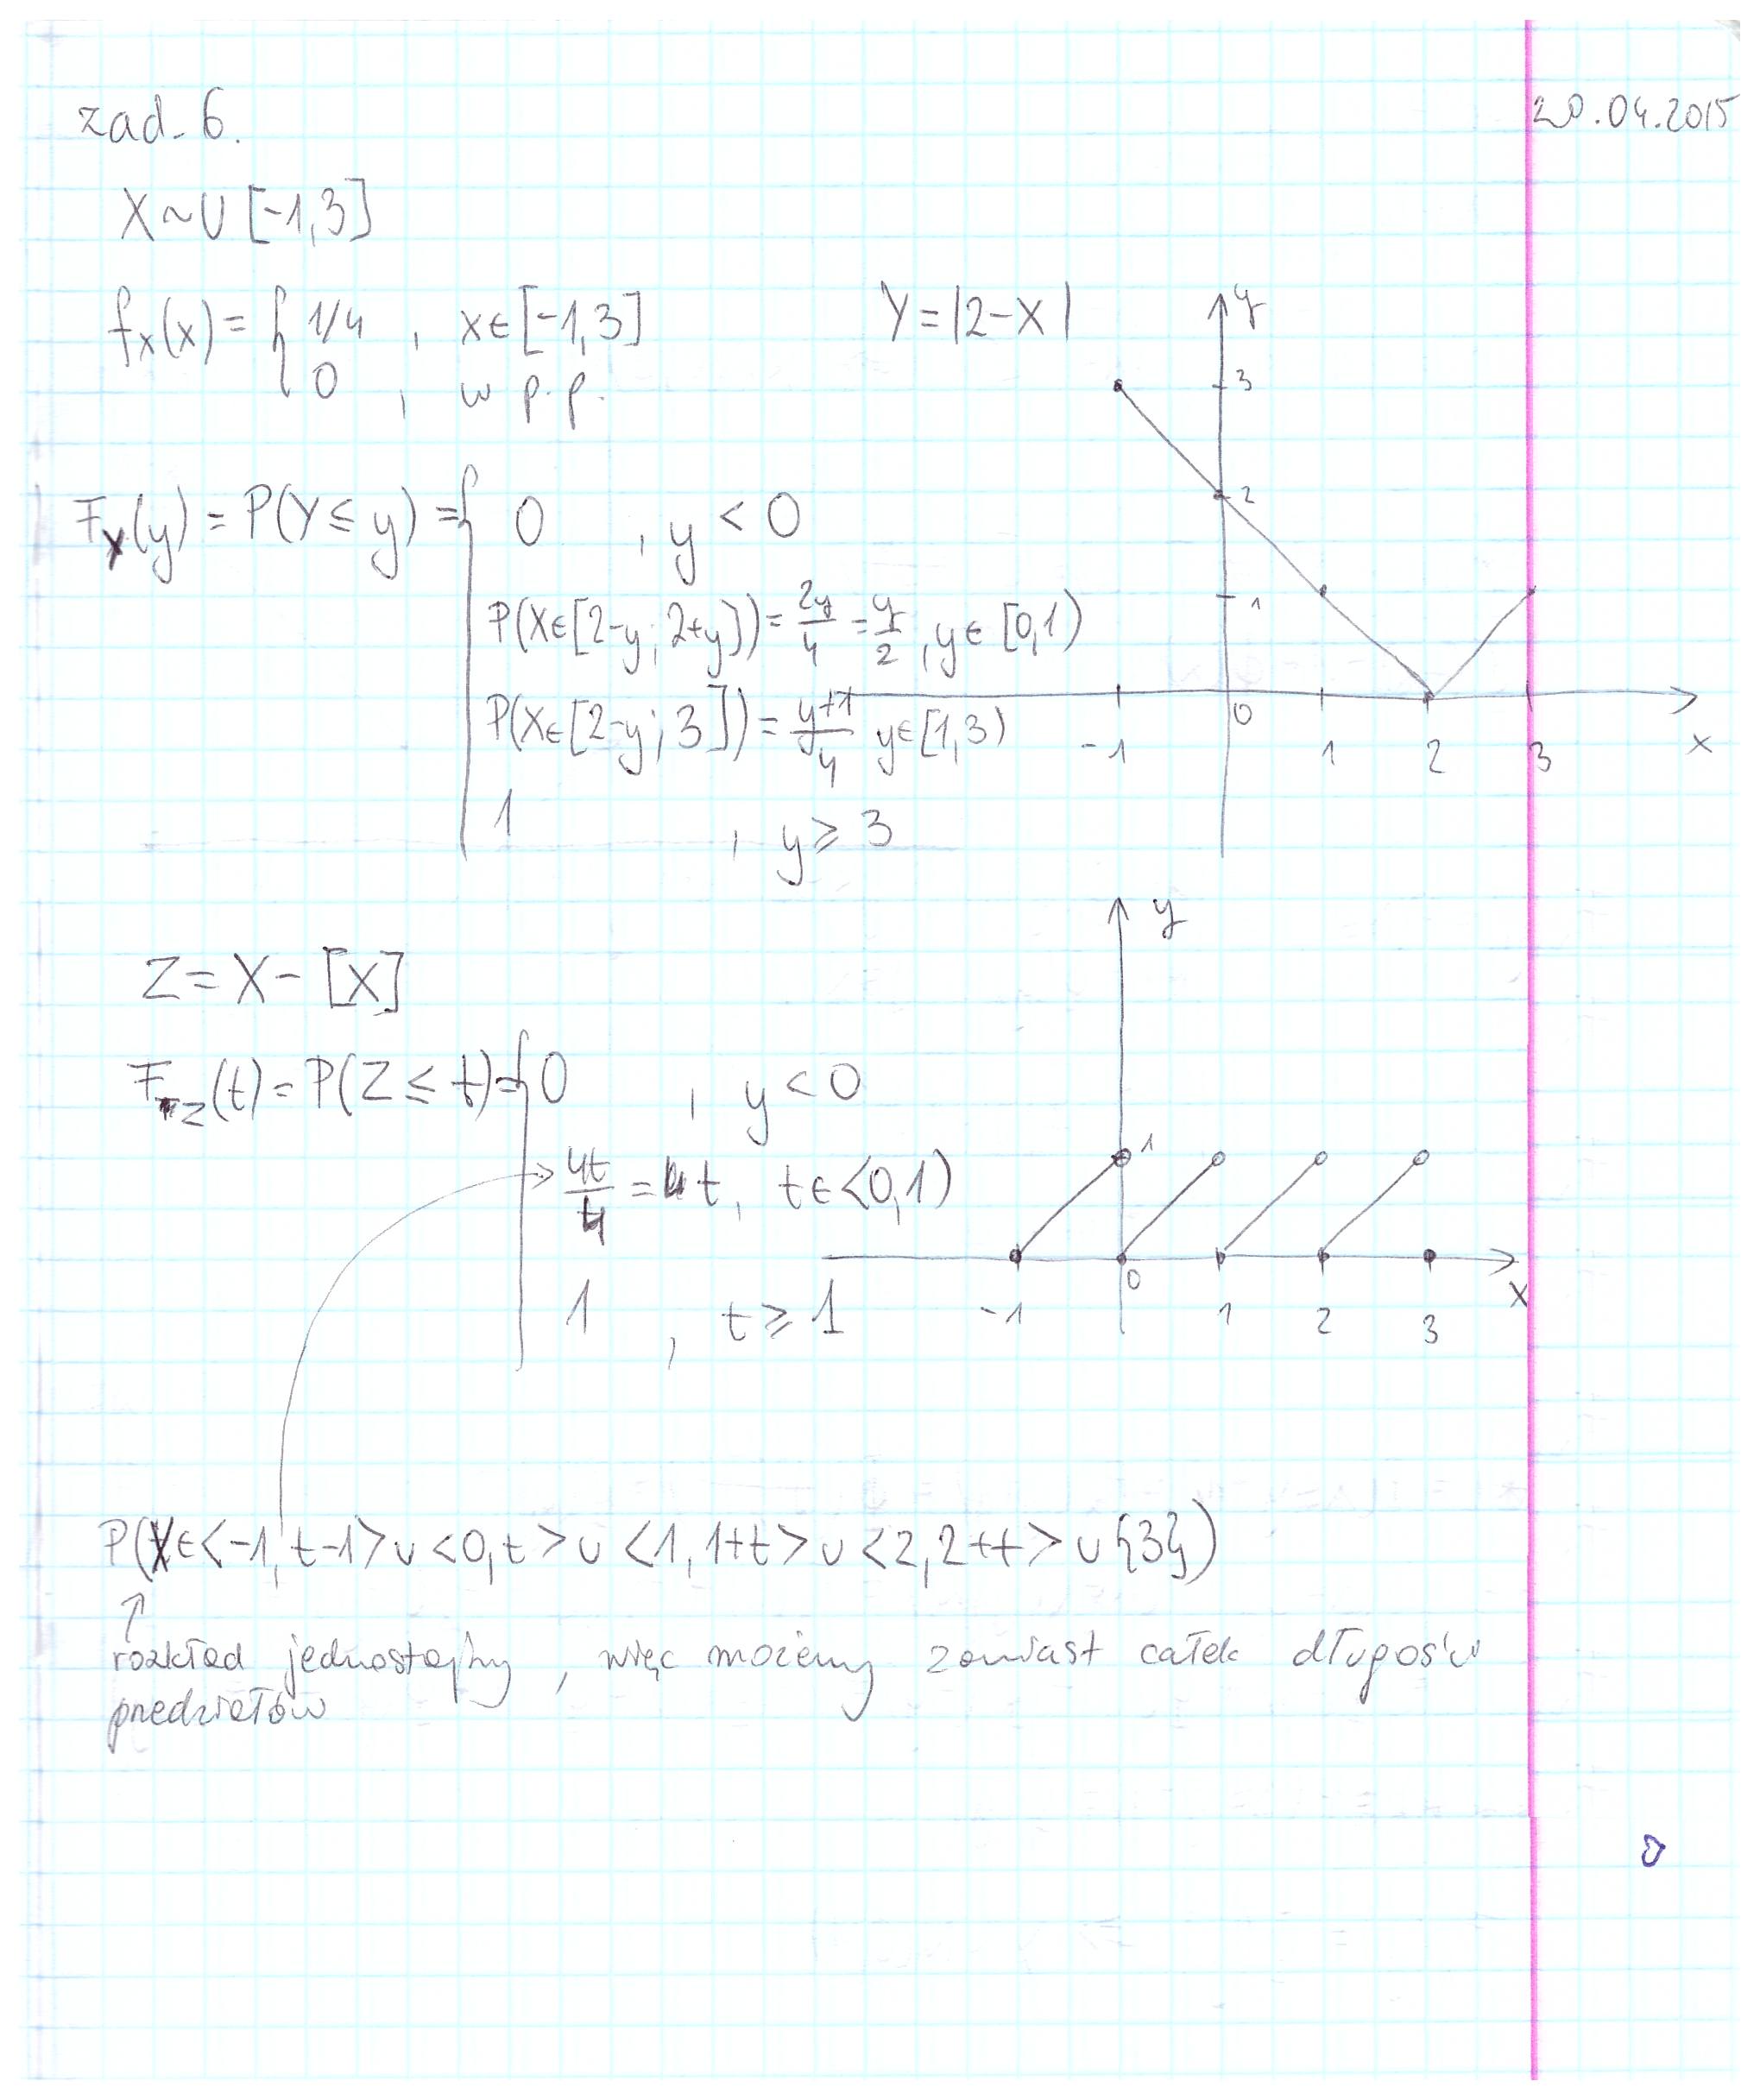 zad. 6.
20.04.2015
X ~ U [-1,3]
f_X(x) = { 1/4 , x ∈ [-1,3]
0 , w p.p.
Y = |2-X|
y
3
2
1
0
-1 1 2 3 x
F_Y(y) = P(Y ≤ y) = { 0 , y < 0
P(X∈[2-y; 2+y]) = 2y/4 = y/2 , y ∈ [0,1)
P(X∈[2-y; 3]) = y+1/4 y∈[1,3)
1 , y ≥ 3
y
Z = X - [X]
F_Z(t) = P(Z ≤ t) = { 0 , y < 0
4t/4 = t, t ∈ <0,1)
1 , t ≥ 1
1
0
-1 1 2 3
x
P(X∈<-1, t-1> ∪ <0,t> ∪ <1, 1+t> ∪ <2, 2+t> ∪ {3})
↑
rozkład jednostajny, więc możemy zamiast całek długości
przedziałów